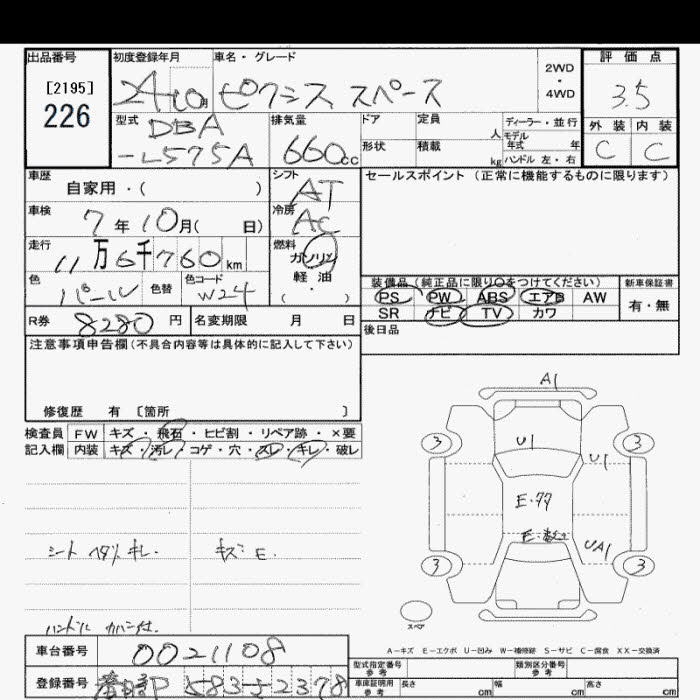 出品番号 初度登録年月 車名・グレード 評価点
[2195] 226 24年10月 ピクシス スペース 2WD・4WD 3.5
型式 DBA-L575A 排気量 660cc ドア 定員 人 ディーラー・並行 外装 内装
形状 積載 kg モデル年式 年 ハンドル 左・右 C C
車歴 自家用・( ) シフト AT セールスポイント (正常に機能するものに限ります)
車検 7年10月( 日) 冷房 AC
走行 11万6千760km 燃料 ガソリン 軽油 (・)
色 パール 色替 色コード W24 装備品(純正品に限り○をつけてください) 新車保証書
PS PW ABS エアB AW 有・無
R券 8280円 名変期限 月 日 SR ナビ TV カワ
後日品
注意事項申告欄(不具合内容等は具体的に記入して下さい)
修復歴 有 〔箇所 〕
検査員 FW キズ・飛石・ヒビ割・リペア跡・×要
記入欄 内装 キズ・汚レ・コゲ・穴・スレ・キレ・破レ
A1
3 3
U1 U1
E・77
シート ヘタリ キレ. キズ E.
UA1
3 3
スペア
車台番号 0021108
A-キズ E-エクボ U-凹み W-補修跡 S-サビ C-腐食 XX-交換済
登録番号 583 2378
型式指定番号 参考 類別区分番号 参考
車庫証明用 参考 長さ cm 幅 cm 高さ cm